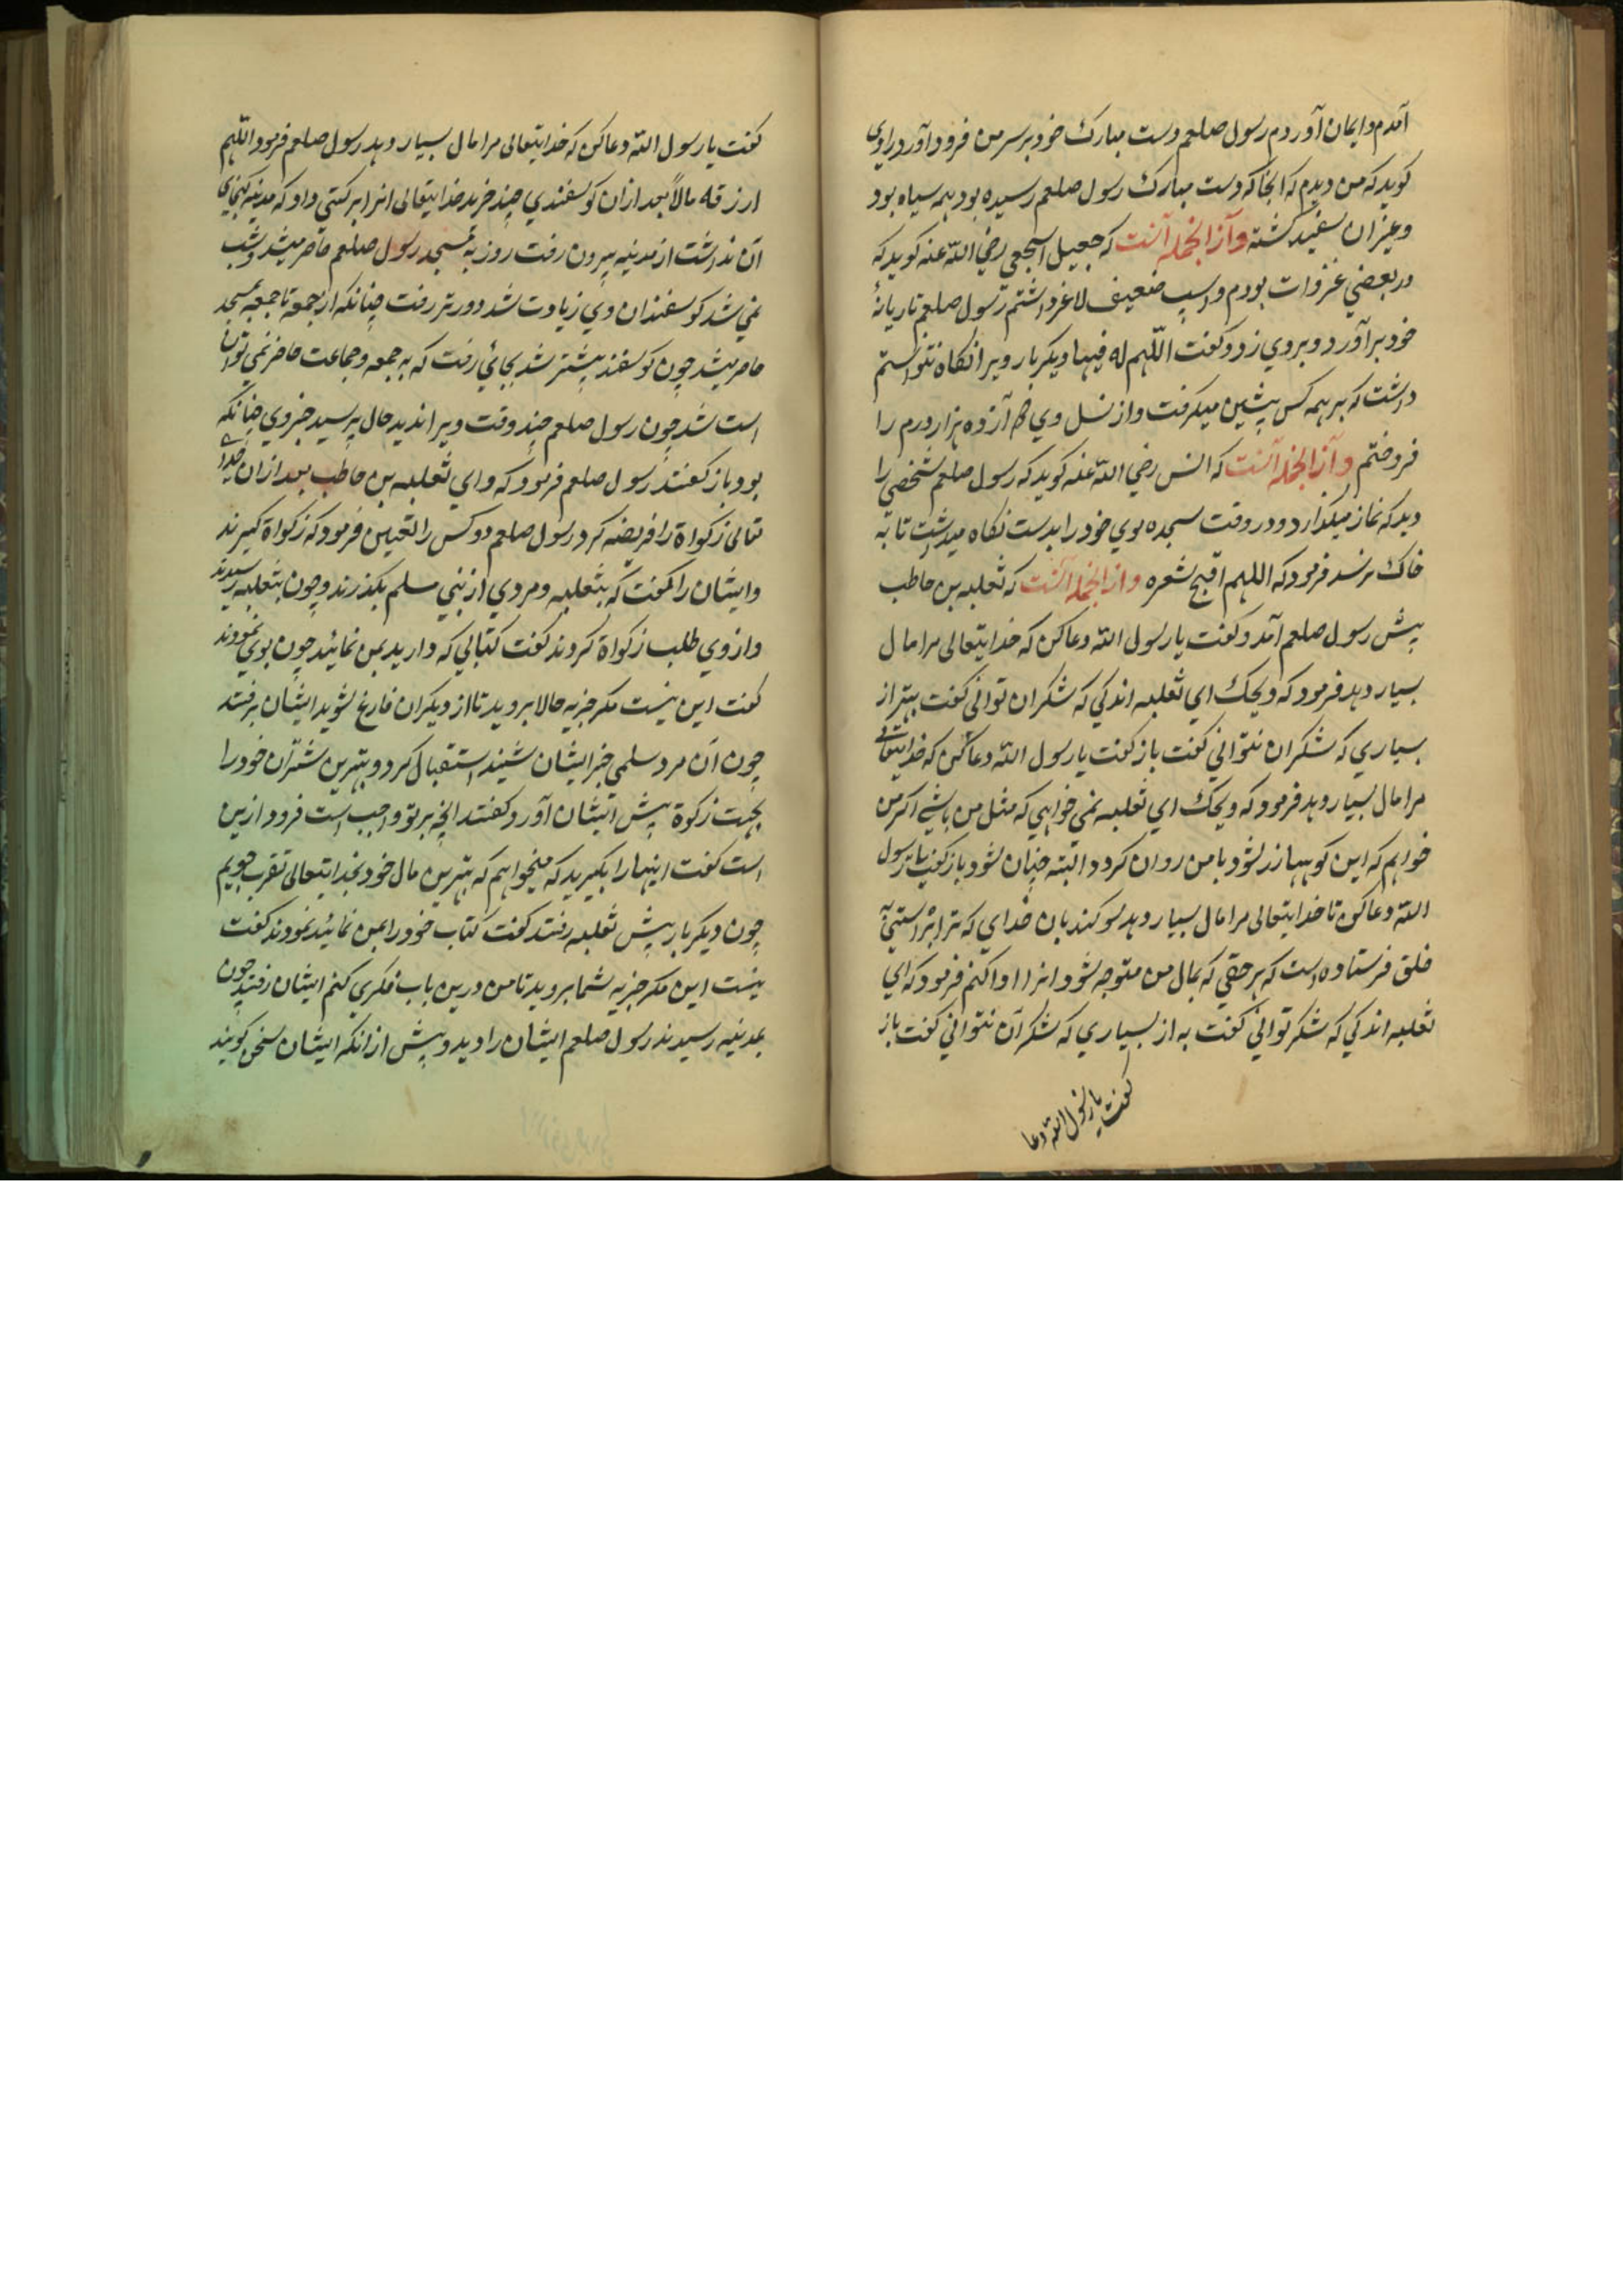 آمدم و ایمان آوردم رسول صلعم دست مبارک خود بر سر من فرود آورد راوی
کوید که من دیدم که انجا که دست مبارک رسول صلعم رسیده بود همه سیاه بود
و غیر ان سفید کشته و از انجمله آنست که جعیل اشجعی رضی الله عنه کوید که
در بعضی غزوات بودم و اسپ ضعیف لاغر داشتم رسول صلعم تازیانهٔ
خود برآورد و بروی زد و کفت اللهم بارک له فیها دیکر بار ویرا نکاه نتوانستم
داشت که بر همه کس پیشین میکرفت و از نسل وی دوازده هزار درم را
فروختم و از انجمله آنست که انس رضی الله عنه کوید که رسول صلعم شخصی را
دید که نماز میکذارد و در وقت سجده موی خود را بدست نکاه میداشت تا به
خاک نرسد فرمود که اللهم اقبح شعره و از انجمله آنست که ثعلبه بن حاطب
پیش رسول صلعم آمد و کفت یا رسول الله دعا کن که خدایتعالی مرا مال
بسیار دهد فرمود که ویحک ای ثعلبه اندکی که شکر ان توانی کفت بهتر از
بسیاری که شکر ان نتوانی کفت باز کفت یا رسول الله دعا کن که خدایتعالی
مرا مال بسیار دهد فرمود که ویحک ای ثعلبه نمی خواهی که مثل من باشی اکر من
خواهم که این کوهها زر شود با من روان کردد البته چنان شود باز کفت یا رسول
الله دعا کن تا خدایتعالی مرا مال بسیار دهد سوکند بان خدای که ترا براستی به
خلق فرستاده است که هر حقی که بمال من متوجه شود انرا ادا کنم فرمود که ای
ثعلبه اندکی که شکر توانی کفت به از بسیاری که شکر آن نتوانی کفت باز
کفت یا رسول الله دعا
کفت یا رسول الله دعا کن که خدایتعالی مرا مال بسیار دهد رسول صلعم فرمود اللهم
ارزقه مالاً بعد ازان کوسفندی چند خرید خدایتعالی انرا برکتی داد که مدینه کنجای
آن نداشت از مدینه بیرون رفت روز به مسجد رسول صلعم حاضر میشد و شب
نمی شد کوسفندان وی زیادت شد دورتر رفت چنانکه از جمعه تا جمعه بمسجد
حاضر میشد چون کوسفند بیشتر شد بجائی رفت که به جمعه و جماعت حاضر نمی توان
است شد چون رسول صلعم چند وقت ویرا ندید حال پرسید خبر وی چنانکه
بود باز کفتند رسول صلعم فرمود که وای ثعلبه بن حاطب بعد ازان خدای
تعالی زکواة را فریضه کرد رسول صلعم دو کس را تعیین فرمود که زکواة کیرند
و ایشان را کفت که بثعلبه و مردی از بنی سلم بکذرند و چون بثعلبه رسیدند
و از وی طلب زکواة کردند کفت کتابی که دارید بمن نمائید چون بوی نمودند
کفت این نیست مکر جزیه حالا بروید تا از دیکران فارغ شوید ایشان برفتند
چون آن مرد سلمی خبر ایشان شنید استقبال کرد و بهترین شتران خود را
بجهت زکوة پیش ایشان آورد کفتند انچه بر تو واجب است فرود ازین
است کفت اینها را بکیرید که میخواهم که بهترین مال خود بخدایتعالی تقرب جویم
چون دیکر بار پیش ثعلبه رفتند کفت کتاب خود را بمن نمائید نمودند کفت
نیست این مکر جزیه شما بروید تا من درین باب فکری کنم ایشان رفتند چون
بمدینه رسیدند رسول صلعم ایشان را دید و پیش از انکه ایشان سخن کویند